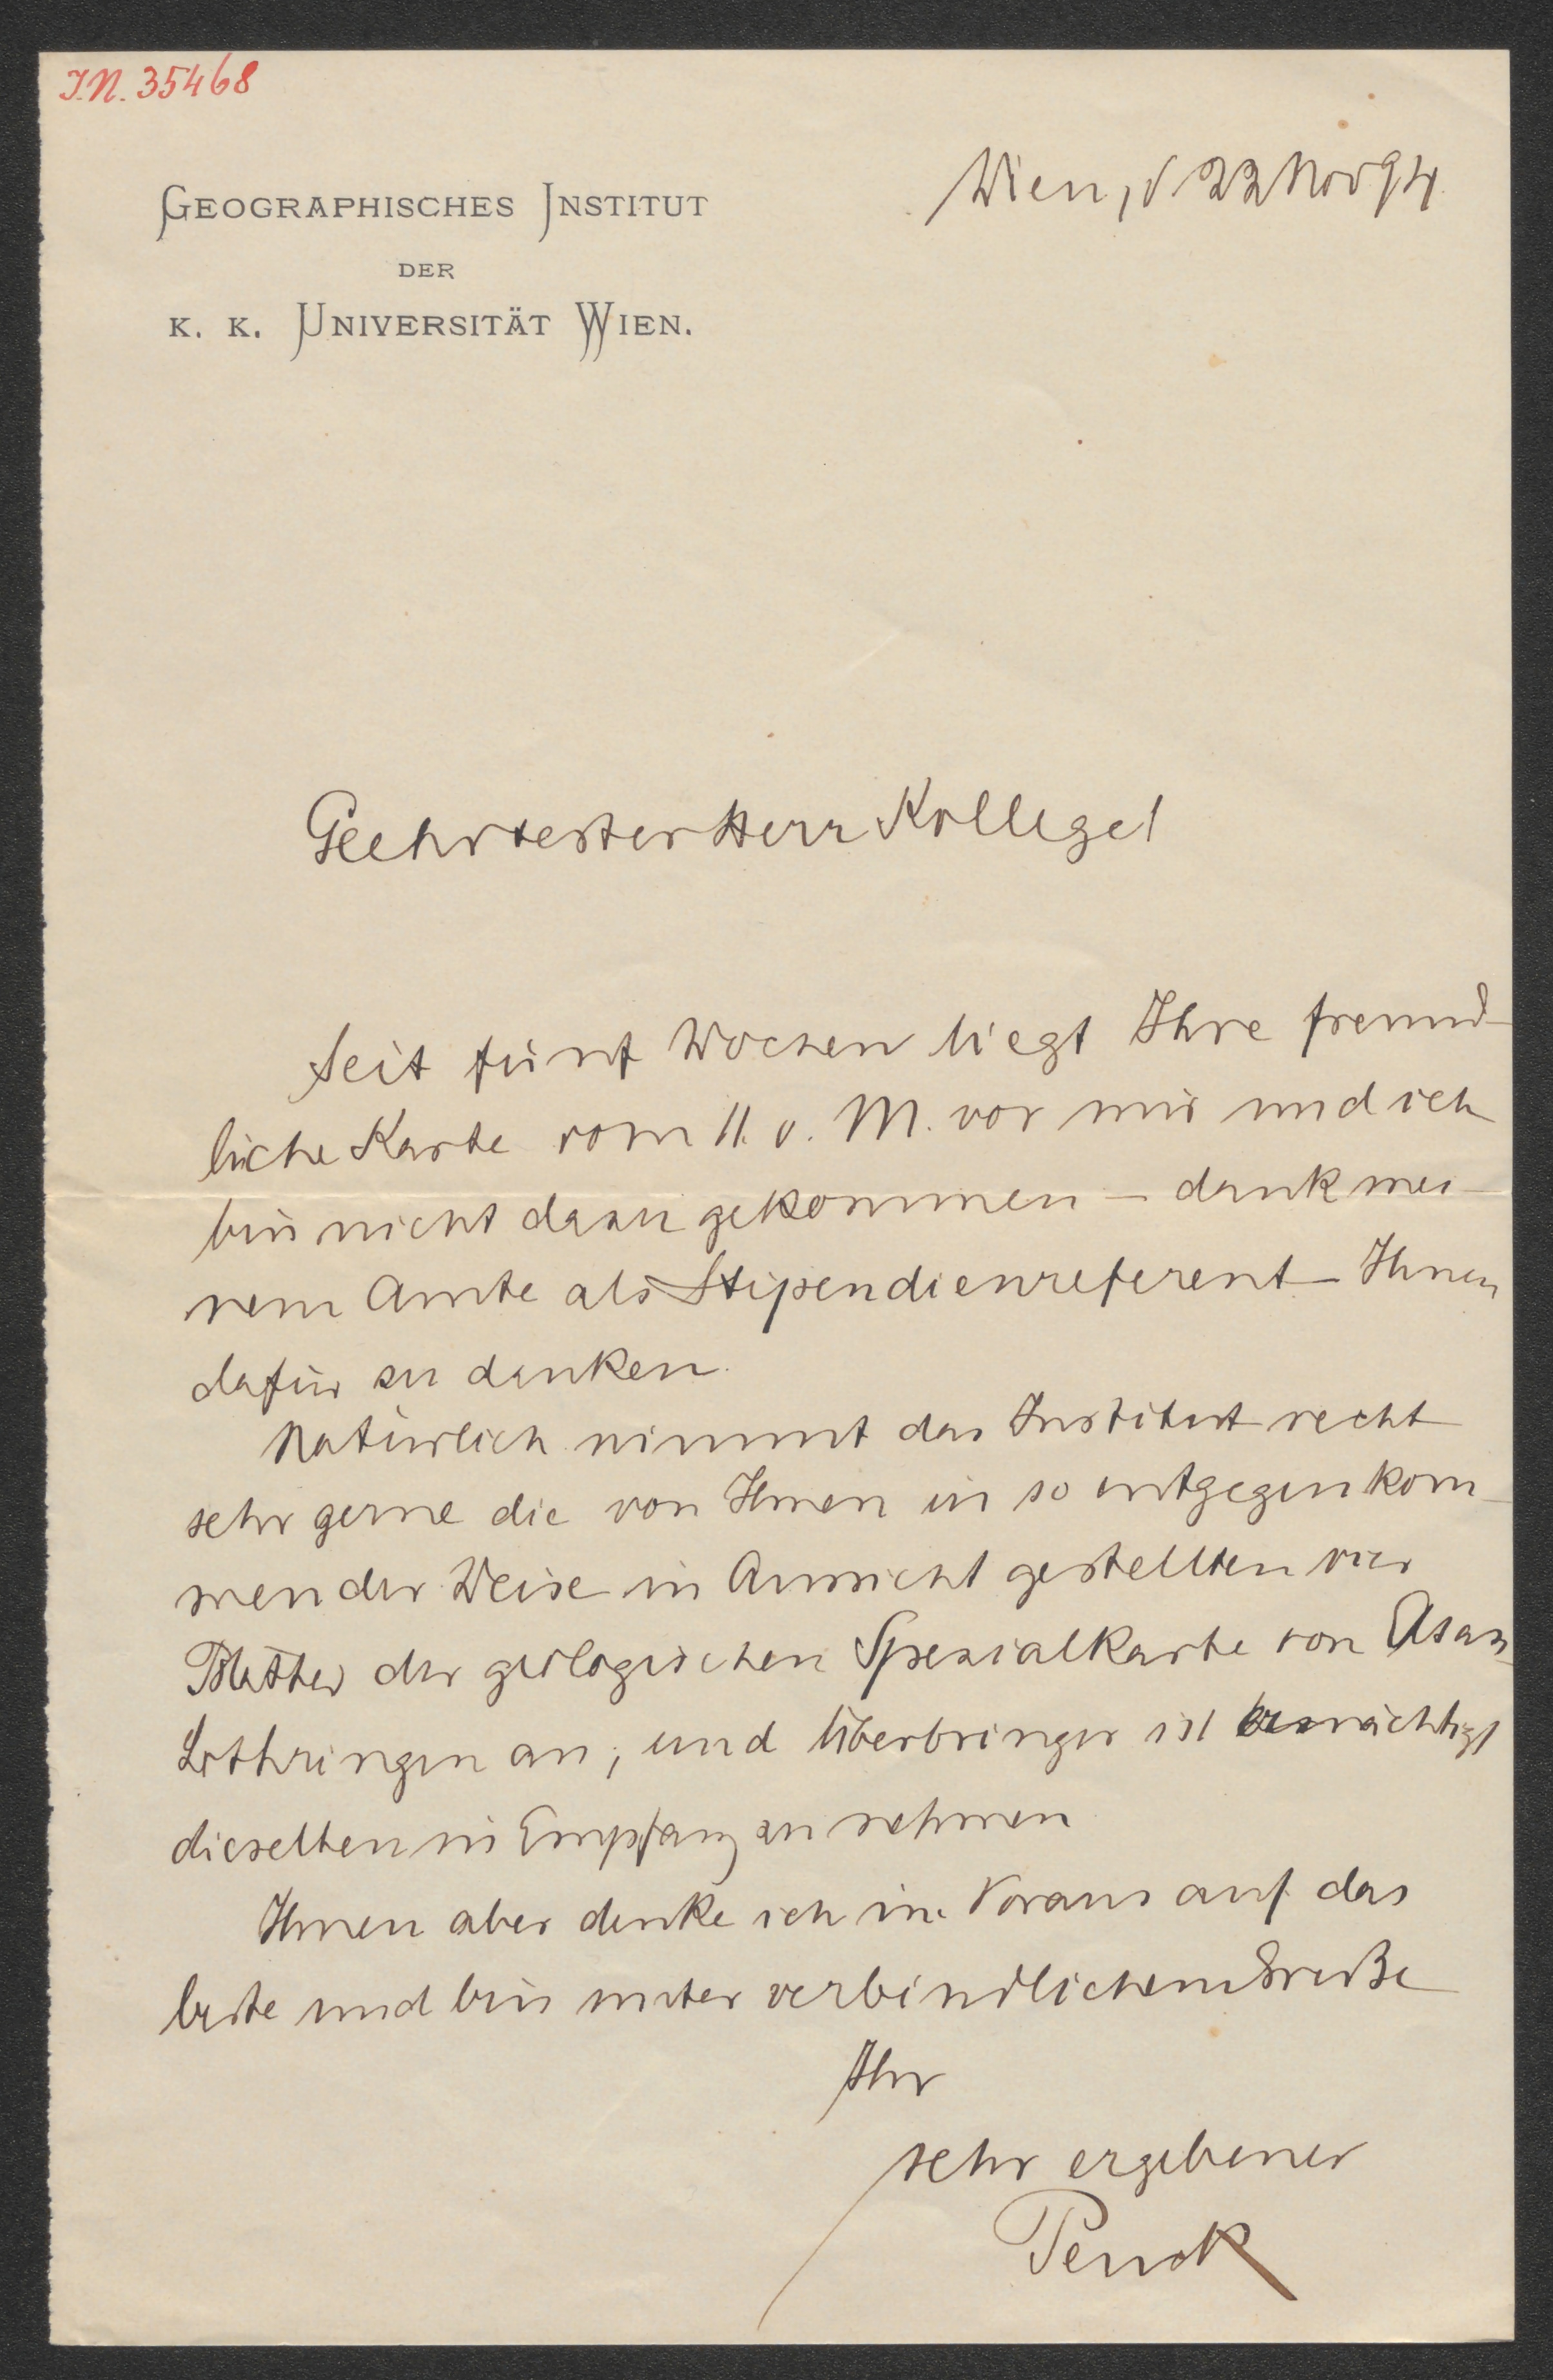 I.N. 35468
GEOGRAPHISCHES INSTITUT
DER
K. K. UNIVERSITÄT WIEN.
Wien, d 22 Nov 94.
Geehrtester Herr Kollege!
Seit fünf Wochen liegt Ihre freund-
liche Karte vom 11. v. M. vor mir und ich
bin nicht dazu gekommen – dank mei-
nem Amte als Stipendienreferent – Ihnen
dafür zu danken.
Natürlich nimmt das Institut recht
sehr gerne die von Ihnen in so entgegenkom-
mender Weise in Aussicht gestellten vier
Blätter der geologischen Spezialkarte von Elsass-
Lothringen an, und Überbringer ist ermächtigt
dieselben in Empfang zu nehmen
Ihnen aber danke ich im Voraus auf das
beste und bin unter verbindlichem Gruße
Ihr
sehr ergebener
Penck